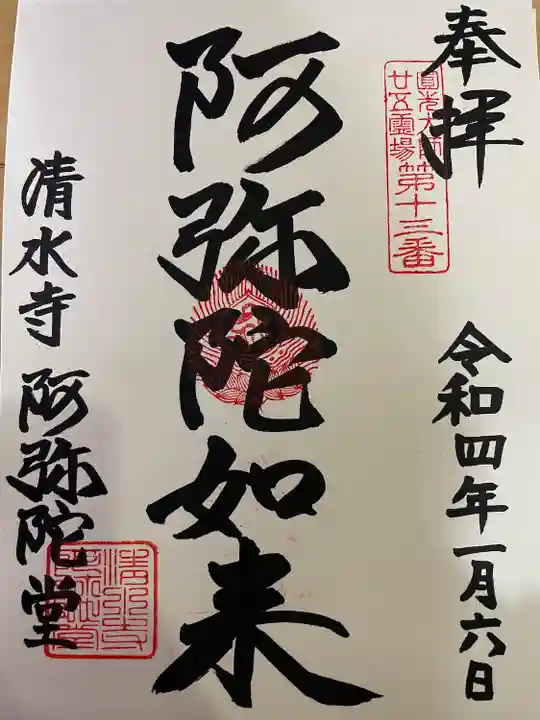 奉拝
圓光大師
廿五霊場第十三番
令和四年一月六日
阿弥陀如来
清水寺 阿弥陀堂